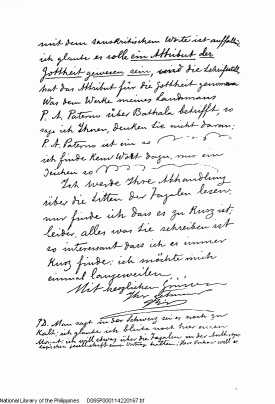 mit dem sanskritischen Worte ist auffallend
ich glaube es solle ein Attribut der
Gottheit gewesen sein, und die Schriftst
hat das Attribut für die Gottheit genommen
Was dem Werke meines Landsmans
P. A. Paterno über Bathala betrifft, so
sage ich Ihnen, denken Sie nicht daran;
P. A. Paterno ist ein so
ich finde kein Wort dazu, nur ein
Zeichen so
Ich werde Ihre Abhandlung
über die Sitten der Tagalen lesen,
nur finde ich dass es zu Kurz ist;
leider, alles was Sie schreiben ist
so interessant dass ich es immer
Kurz finde; ich möchte mich
einmal langweilen.
Mit herzlichen Grüssen
Ihr
Rizal
PD. Man sagt in der Schweiz sei es noch zu
Kalt; ich glaube ich bleibe noch hier einen
Monat; ich will etwas über die Tagalen in der
Gesellschaft einen Vortrag halten.
National Library of the Philippines D095P000114220167.txt